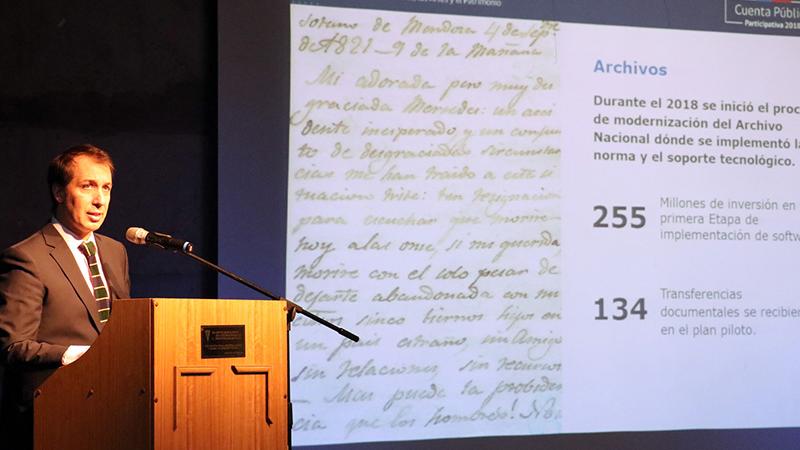 y el Patrimonio
Cuenta Públi
Participativa 2018
Sotano de Mendoza 4 de Sepbre
de 1821 _ 9 de la Mañana
Mi adorada pero muy des
graciada Mercedes: un acci
dente inesperado, y un conjun
to de desgraciadas circunstan
cias me han traido a esta si
tuacion triste: ten resignacion
para escuchar que morire
hoy a las once, si mi querida,
morire con el solo pesar de
dejarte abandonada con nu
estros cinco tiernos hijos en
un pais estraño, sin Amigos
sin relaciones, sin recursos
– Mas puede la probiden
cia que los hombres! No
Archivos
Durante el 2018 se inició el proc
de modernización del Archivo
Nacional dónde se implementó la
norma y el soporte tecnológico.
255
Millones de inversión en
primera Etapa de
implementación de softw
134
Transferencias
documentales se recibie
en el plan piloto.